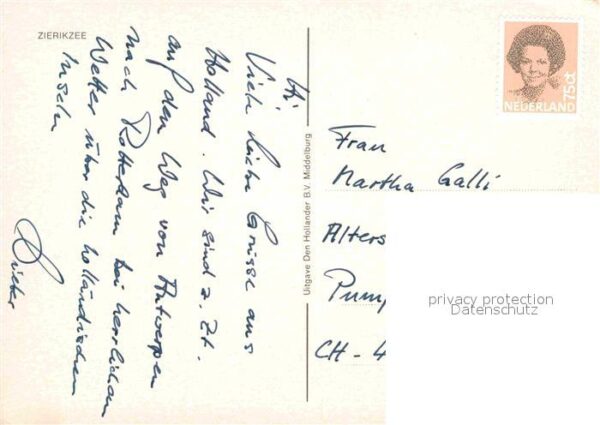 ZIERIKZEE
Hi
Viele liebe Grüsse aus
Holland. Wir sind z. Zt.
auf den Weg von Antwerpen
nach Rotterdam bei herrlichem
Wetter über die holländischen
Inseln
Uitgave Den Hollander B.V. Middelburg
75ct
NEDERLAND
Frau
Martha Galli
Alters
Pump
CH - 4
privacy protection
Datenschutz